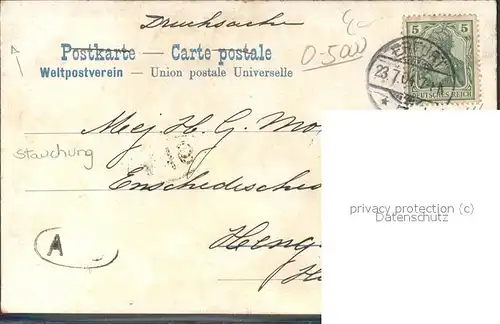 Drucksache
Postkarte — Carte postale
Weltpostverein — Union postale Universelle
0-5000
5 5
DEUTSCHES REICH
ERFURT
23.7.04.7
Mej H. G. Mo
Stauchung
Enschedische
Heng
A
privacy protection (c)
Datenschutz